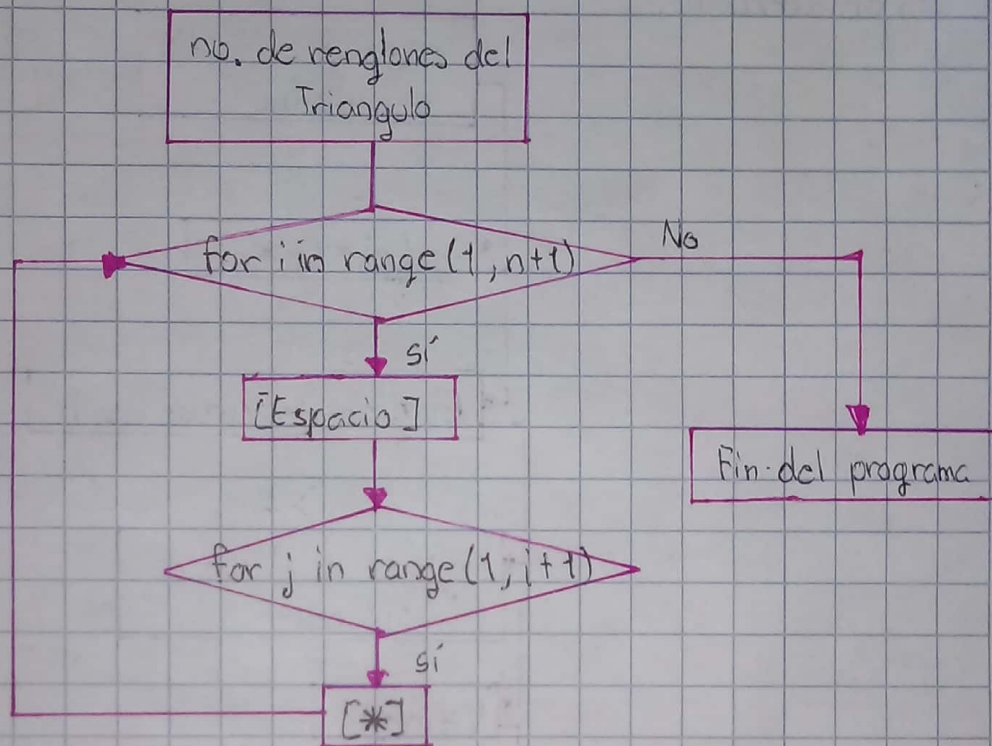 no. de renglones del
Triangulo
for i in range (1, n+1)
No
sí
[Espacio]
Fin del programa
for j in range (1, i+1)
sí
[*]